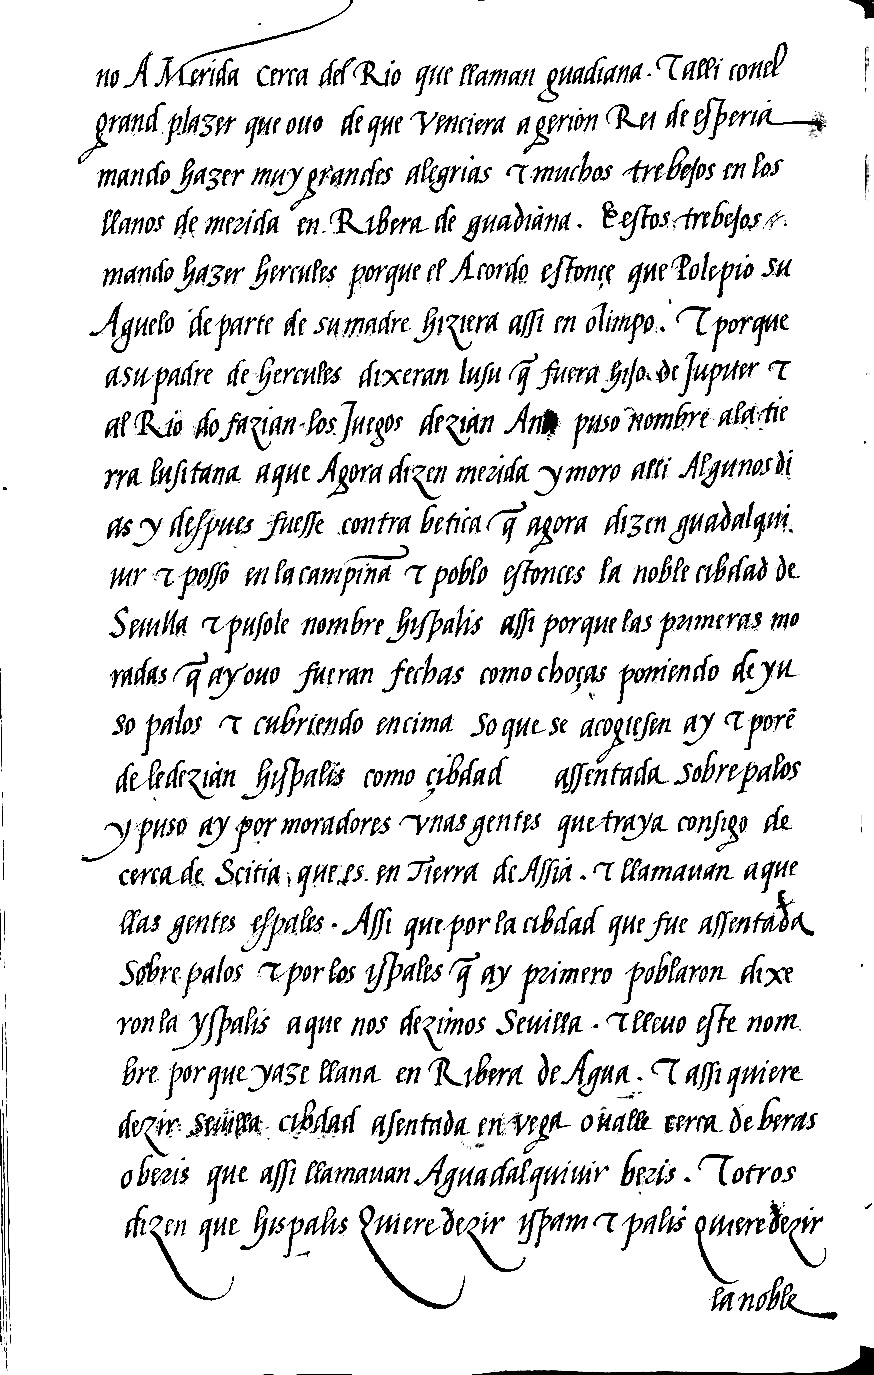 no A Merida cerca del Rio que llaman guadiana. τ alli conel
grand plazer que ouo de que Venciera a gerion Rei de esperia
mando hazer muy grandes alegrias τ muchos trebejos en los
llanos de merida en Ribera de guadiana. E estos trebejos
mando hazer hercules porque el Acordo estonçe que Polepio su
Aguelo de parte de su madre hiziera assi en olimpo. τ porque
a su padre de hercules dixeran lusu q̃ fuera hijo de Jupiter τ
al Rio do fazian los Juegos dezian Ana puso nombre ala tie
rra lusitana a que Agora dizen merida y moro alli Algunos di
as y despues fuesse contra betica q̃ agora dizen guadalqui
uir τ posso en la campiña τ poblo estonces la noble cibdad de
Seuilla τ pusole nombre hispalis assi porque las primeras mo
radas q̃ ay ouo fueran fechas como choças poniendo de yu
so palos τ cubriendo encima so que se acogiesen ay τ porẽ
de le dezian hispalis como çibdad assentada sobre palos
y puso ay por moradores vnas gentes que traya consigo de
cerca de Scitia que es en Tierra de Assia. τ llamauan aque
llas gentes espales. Assi que por la cibdad que fue assentada
sobre palos τ por los ispales q̃ ay primero poblaron dixe
ron la yspalis a que nos dezimos Seuilla. τ lleuo este nom
bre por que yaze llana en Ribera de Agua. τ assi quiere
dezir seuilla cibdad asentada en vega o ualle cerca de beras
o beris que assi llamauan Aguadalquiuir beris. τ otros
dizen que hispalis Quiere dezir ispam τ palis quiere dezir
la noble